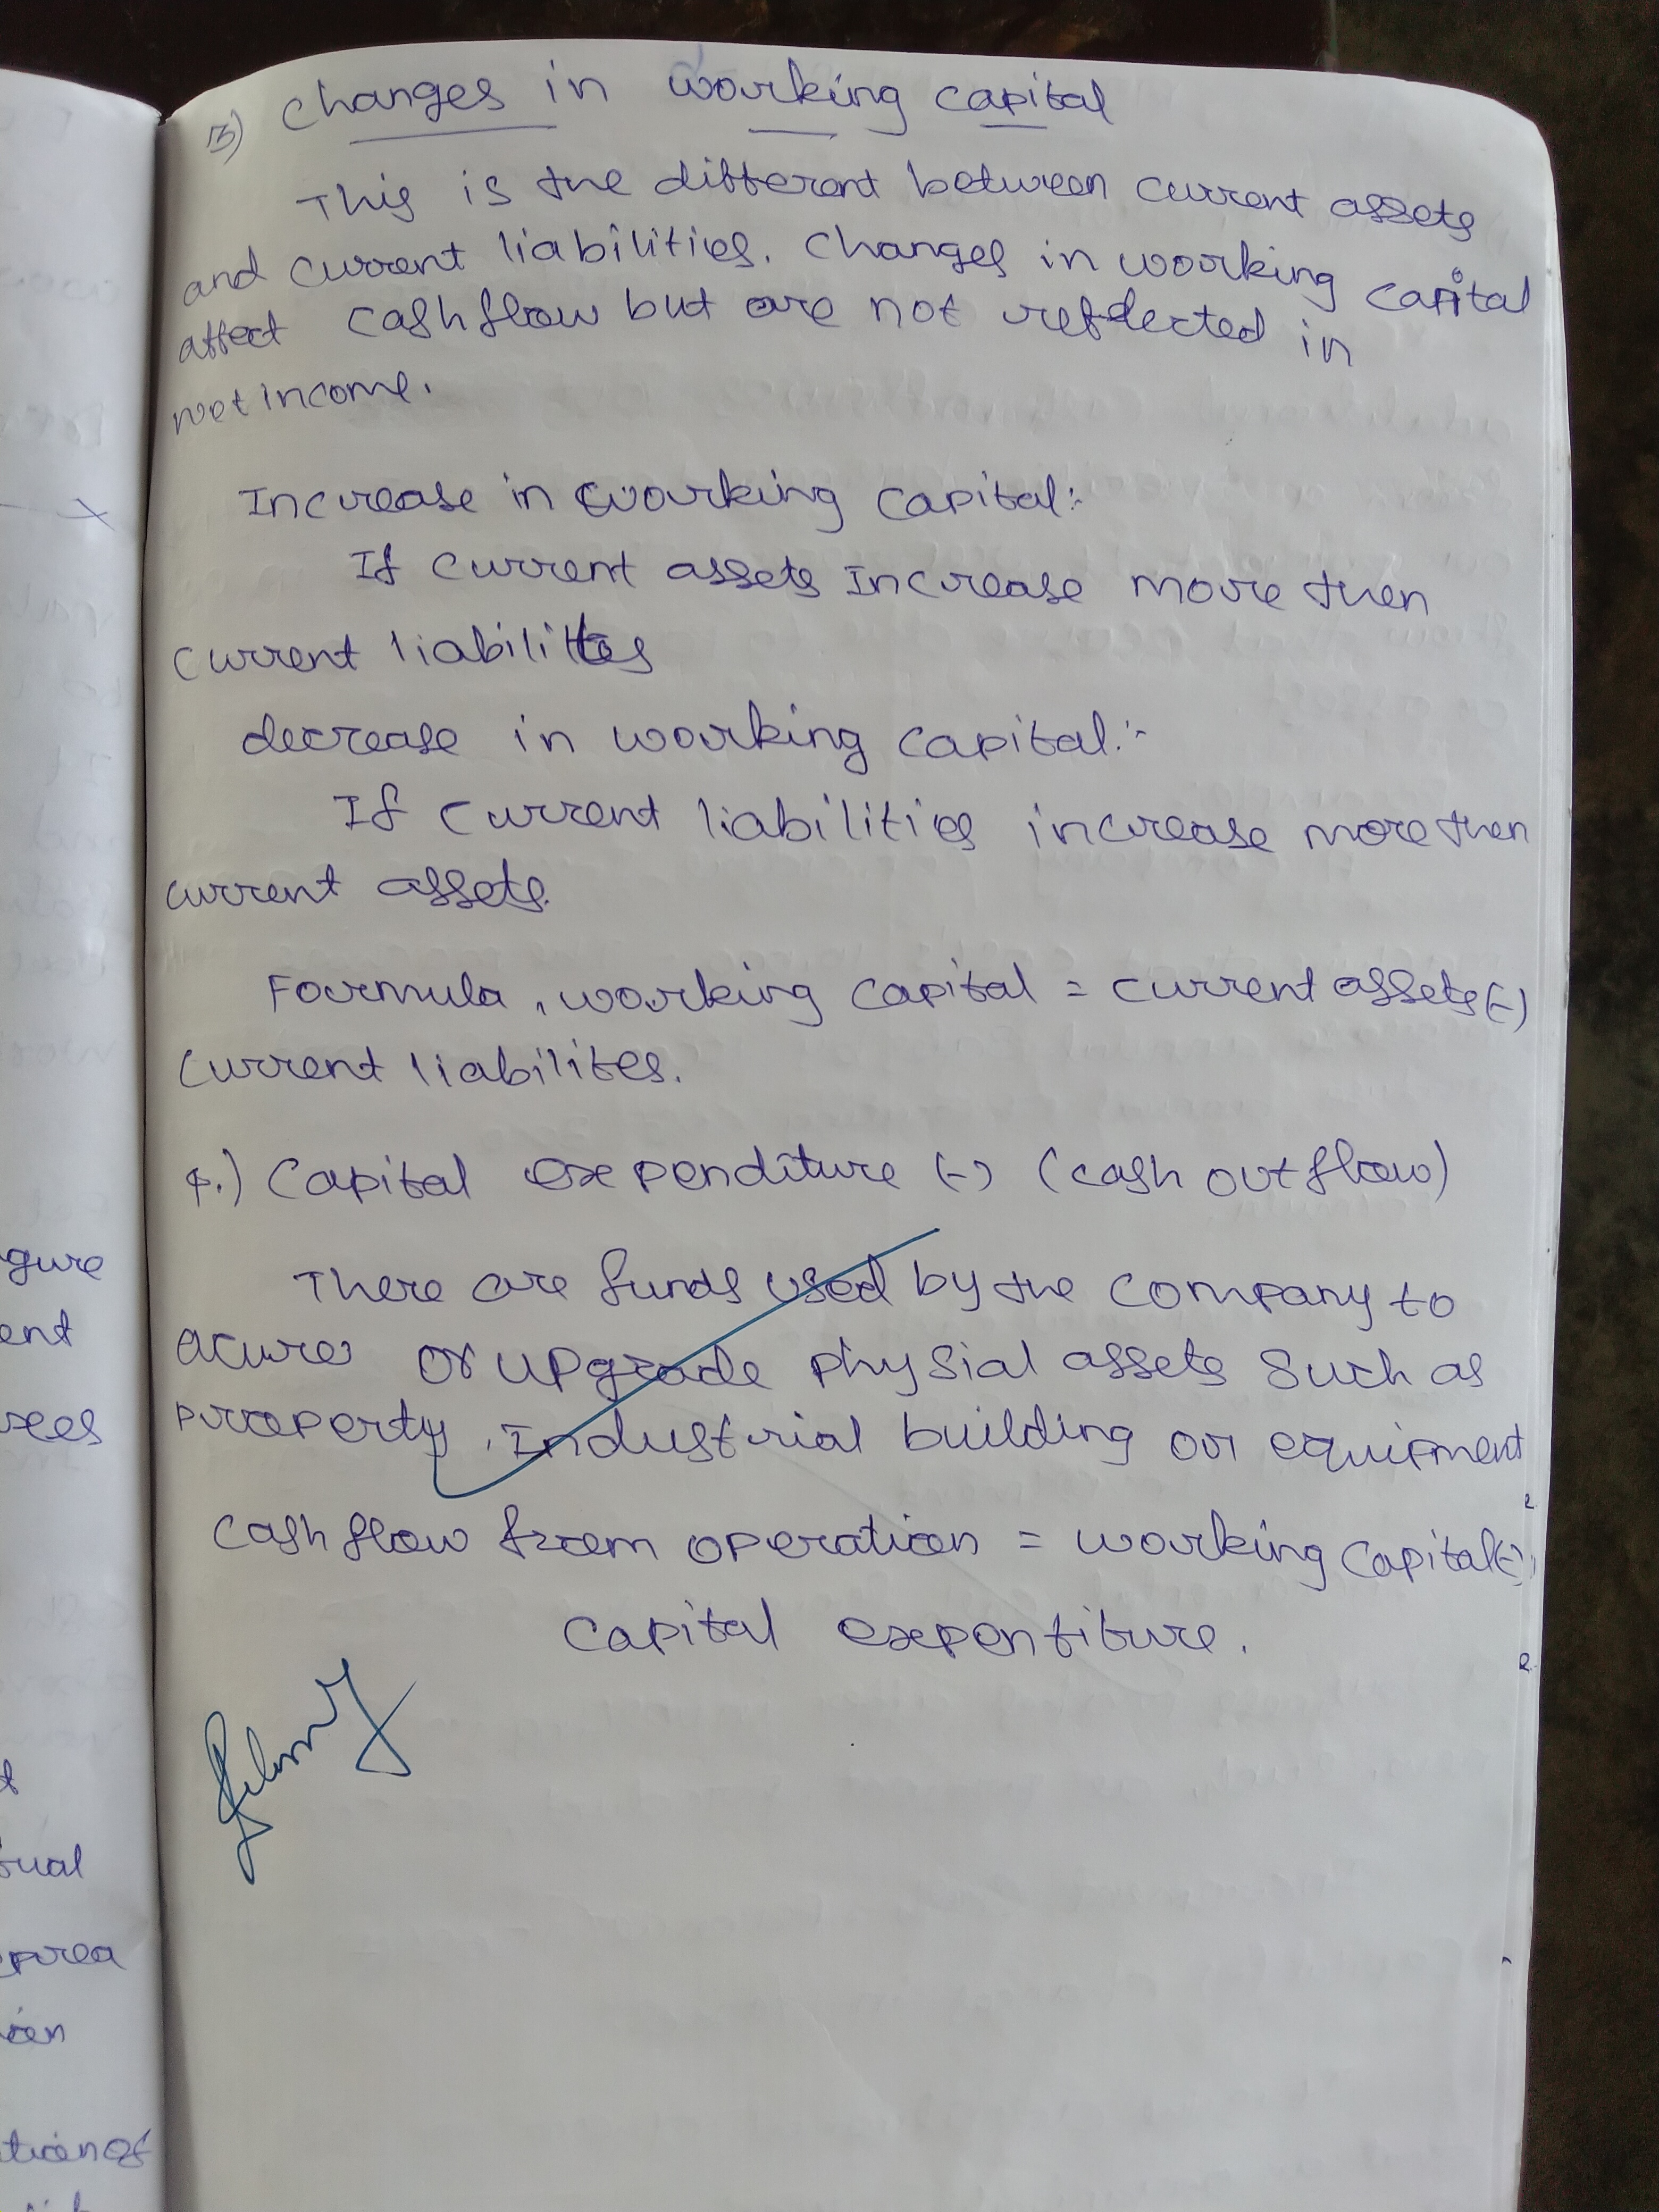 3) changes in working capital
This is the different between current assets
and current liabilities. Changes in working capital
affect cashflow but are not reflected in
net income.
Increase in working capital:-
If current assets Increase more then
current liabilittes
decrease in working capital:-
If current liabilities increase more then
current assets.
Formula, working capital = current assets (-)
current liabilites.
4.) Capital expenditure (-) (cash outflow)
There are funds used by the company to
acure or upgrade physial assets such as
property, Industrial building or equipment
cash flow from operation = working capital (-)
capital expentiture.
gure
ent
sees
prea
tion of